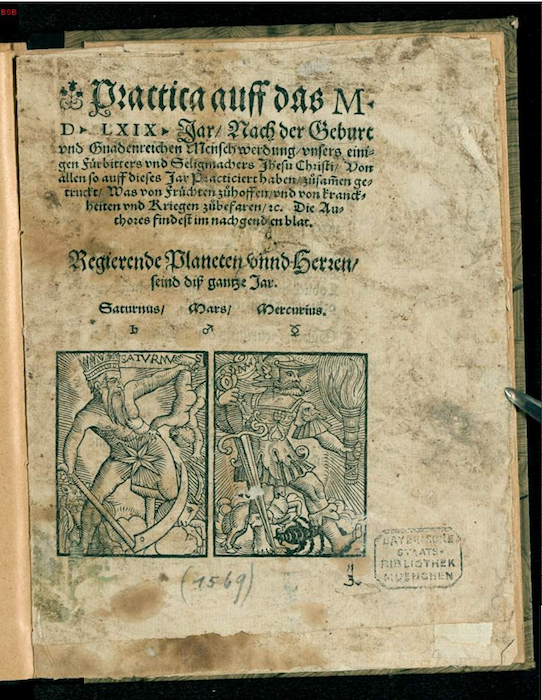 BSB
Practica auff das M.
D. LXIX. Jar/ Nach der Geburt
vnd Gnadenreichen Menschwerdung/ vnsers eini-
gen Fürbitters vnd Seligmachers Jhesu Christi/ Von
allen so auff dieses Jar Practiciert haben/ zůsam̃en ge-
truckt/ Was von Früchten zůhoffen/ vnd von kranck-
heiten vnd Kriegen zůbefaren/ ꝛc. Die Au-
thores findest im nachgenden blat.
Regierende Planeten vnnd Herren/
seind diß gantze Jar.
Saturnus/ Mars/ Mercurius.
♄ ♂ ☿
SATVRNVS
(1569)
BAYERISCHE
STAATS-
BIBLIOTHEK
MUENCHEN